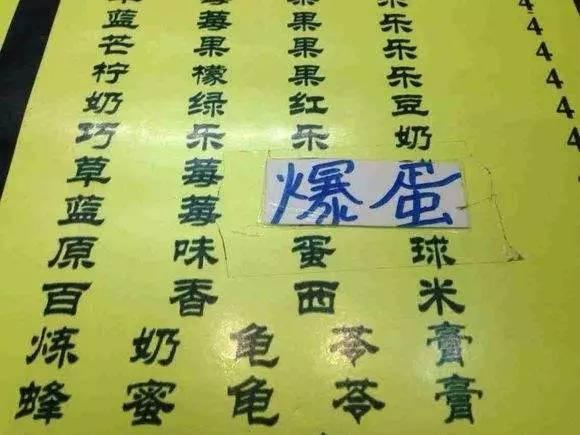 草莓果乐 4
蓝莓果乐 4
芒果果乐 4
柠檬果乐 4
奶绿红豆 4
巧乐乐奶 4
草莓
蓝莓爆蛋
原味蛋球
百香西米
炼奶龟苓膏
蜂蜜龟苓膏